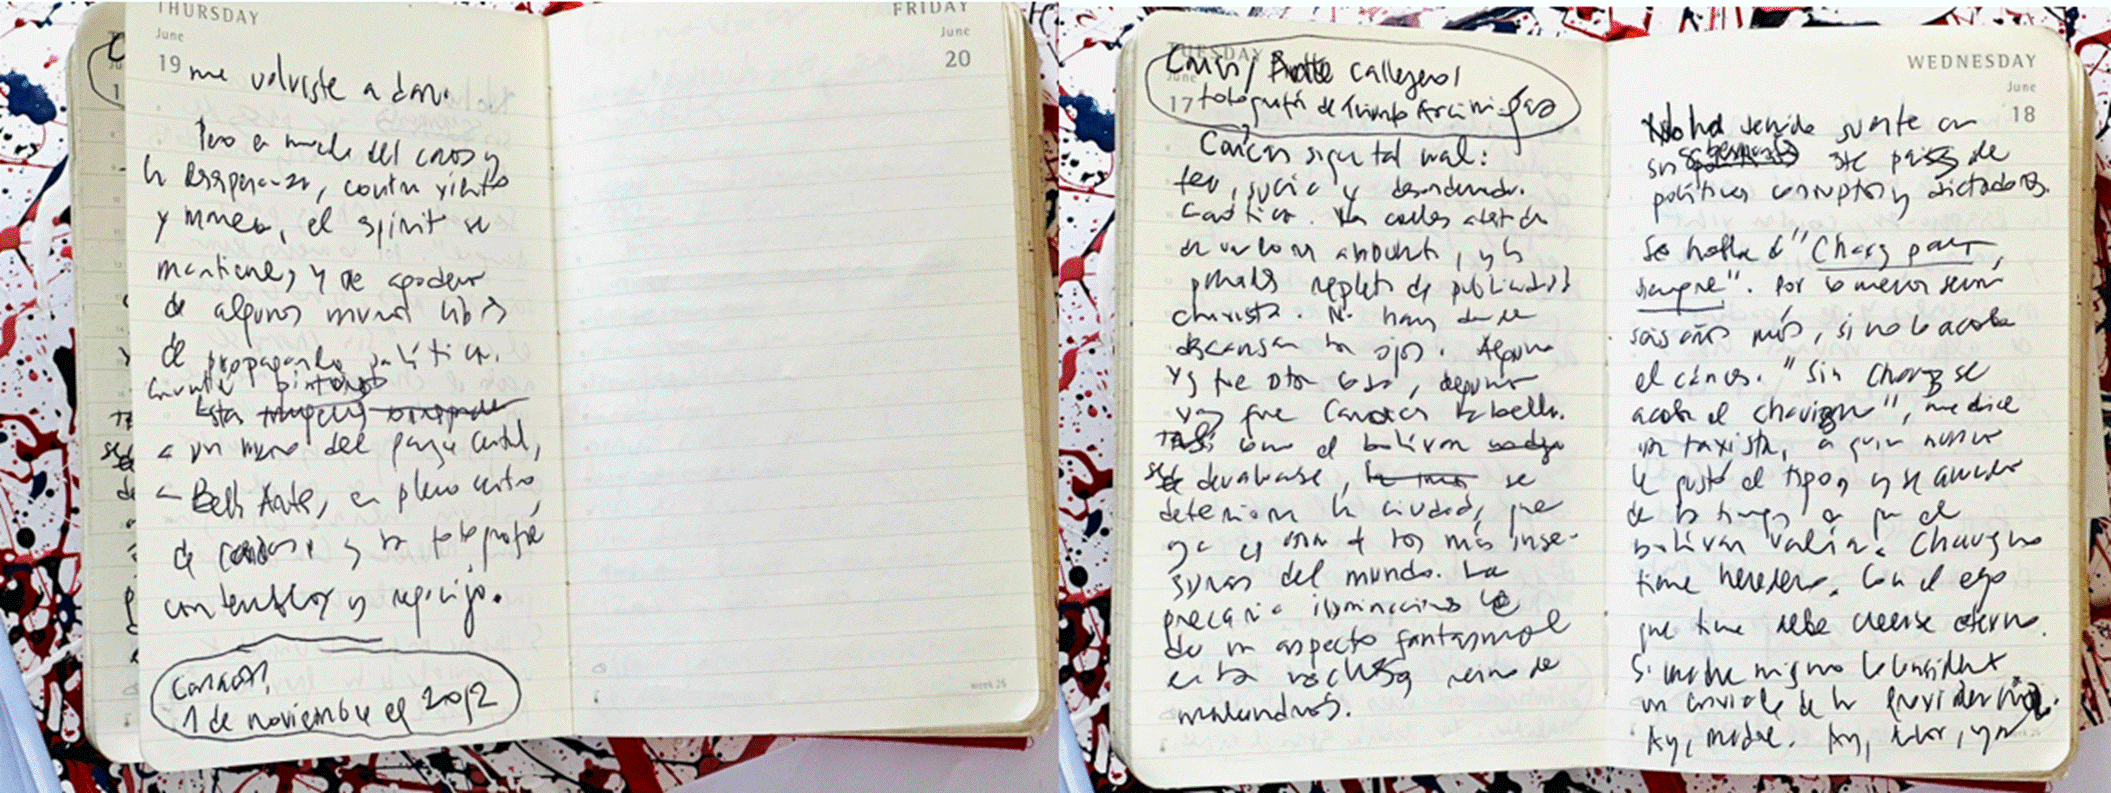 THURSDAY
June
19 me volviste a dar.
Pero en medio del caos y
la desesperanza, contra viento
y marea, el espíritu se
mantiene, y se apodera
de algunos muros libres
de propaganda política.
Esta
a un muro del parque Central,
a Bellas Artes, en pleno centro
de Caracas, y la fotografié
con temblor y regocijo.
Caracas,
1 de noviembre el 2012
FRIDAY
June
20
week 26
TUESDAY
June
17
Caos / Arte callejero /
fotografía de
Caracas sigue tal cual:
feo, sucia y desordenada.
Caótica. Las calles atestadas
de vallas anuncios, y las
paredes repletas de publicidad
chavista. No hay donde
descansar los ojos. Alguna
vez fue otra cosa, alguna
vez fue Caracas la bella.
Tal como el bolívar
se devaluase, se
deteriora la ciudad, que
ya es una de las más inse-
guras del mundo. La
precaria iluminación le
da un aspecto fantasmal
en las noches, reino de
malandros.
WEDNESDAY
June
18
No ha tenido suerte con
sus gobernantes este país de
políticos corruptos y dictadores.
Se habla de "Chávez para
siempre". Por lo menos serán
seis años más, si no lo acaba
el cáncer. "Sin Chávez se
acaba el chavismo", me dice
un taxista, a quien nunca
le gustó el tipo, y se acuerda
de los tiempos en que el
bolívar valía. Chavismo
tiene heredero. Con el ego
que tiene debe creerse eterno.
Su madre misma lo considera
un enviado de la providencia.
Ay, madre. Ay, y no